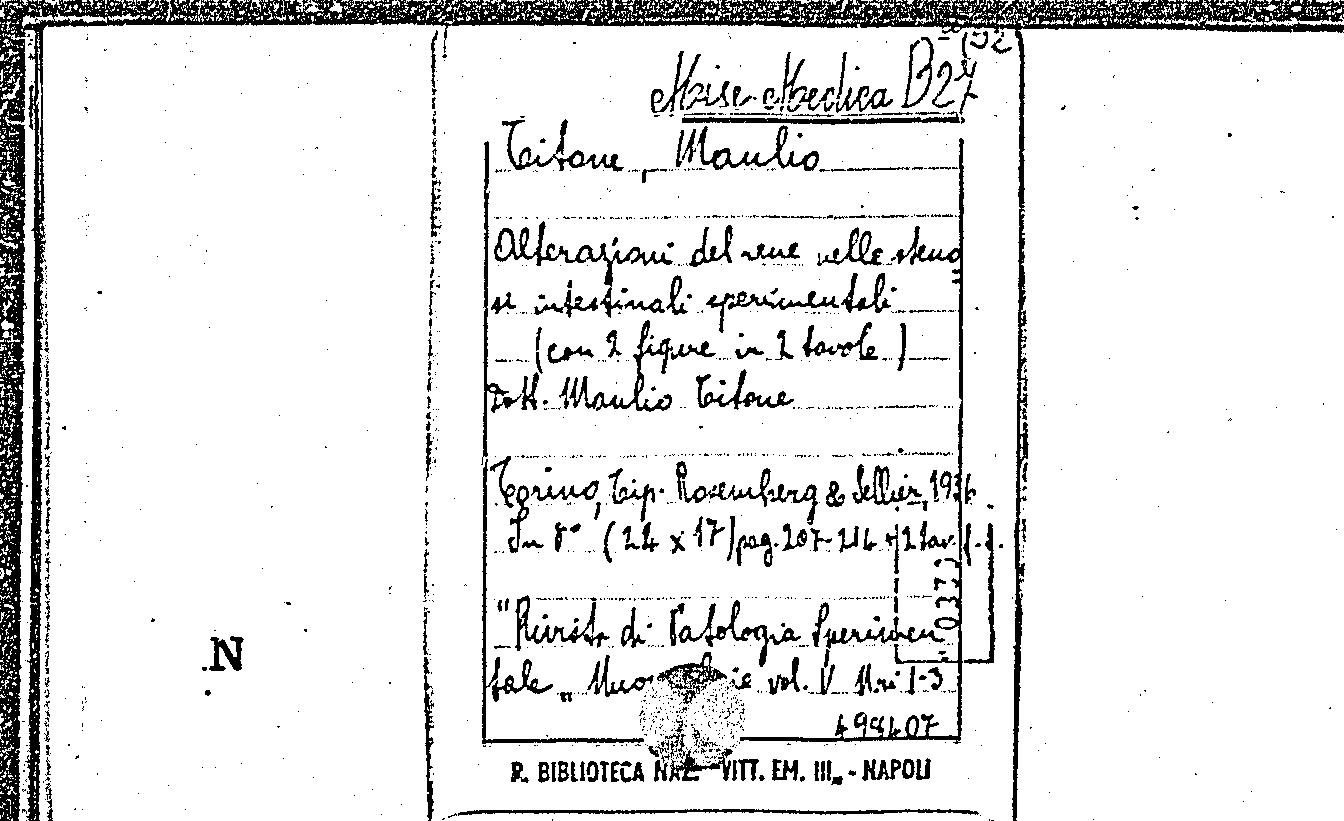 Misc. Medica B27
Titone, Manlio
Alterazioni del rene nelle steno
si intestinali sperimentali
(con 2 figure in 2 tavole)
Dott. Manlio Titone
Torino, Tip. Rosemberg & Sellier, 1936
In 8° (24 x 17) pag. 207-214 + 2 tav. f.t.
"Rivista di Patologia Sperimen
tale„ vol. V N.ri 1-3
498407
R. BIBLIOTECA NAZ. VITT. EM. III„ - NAPOLI
N